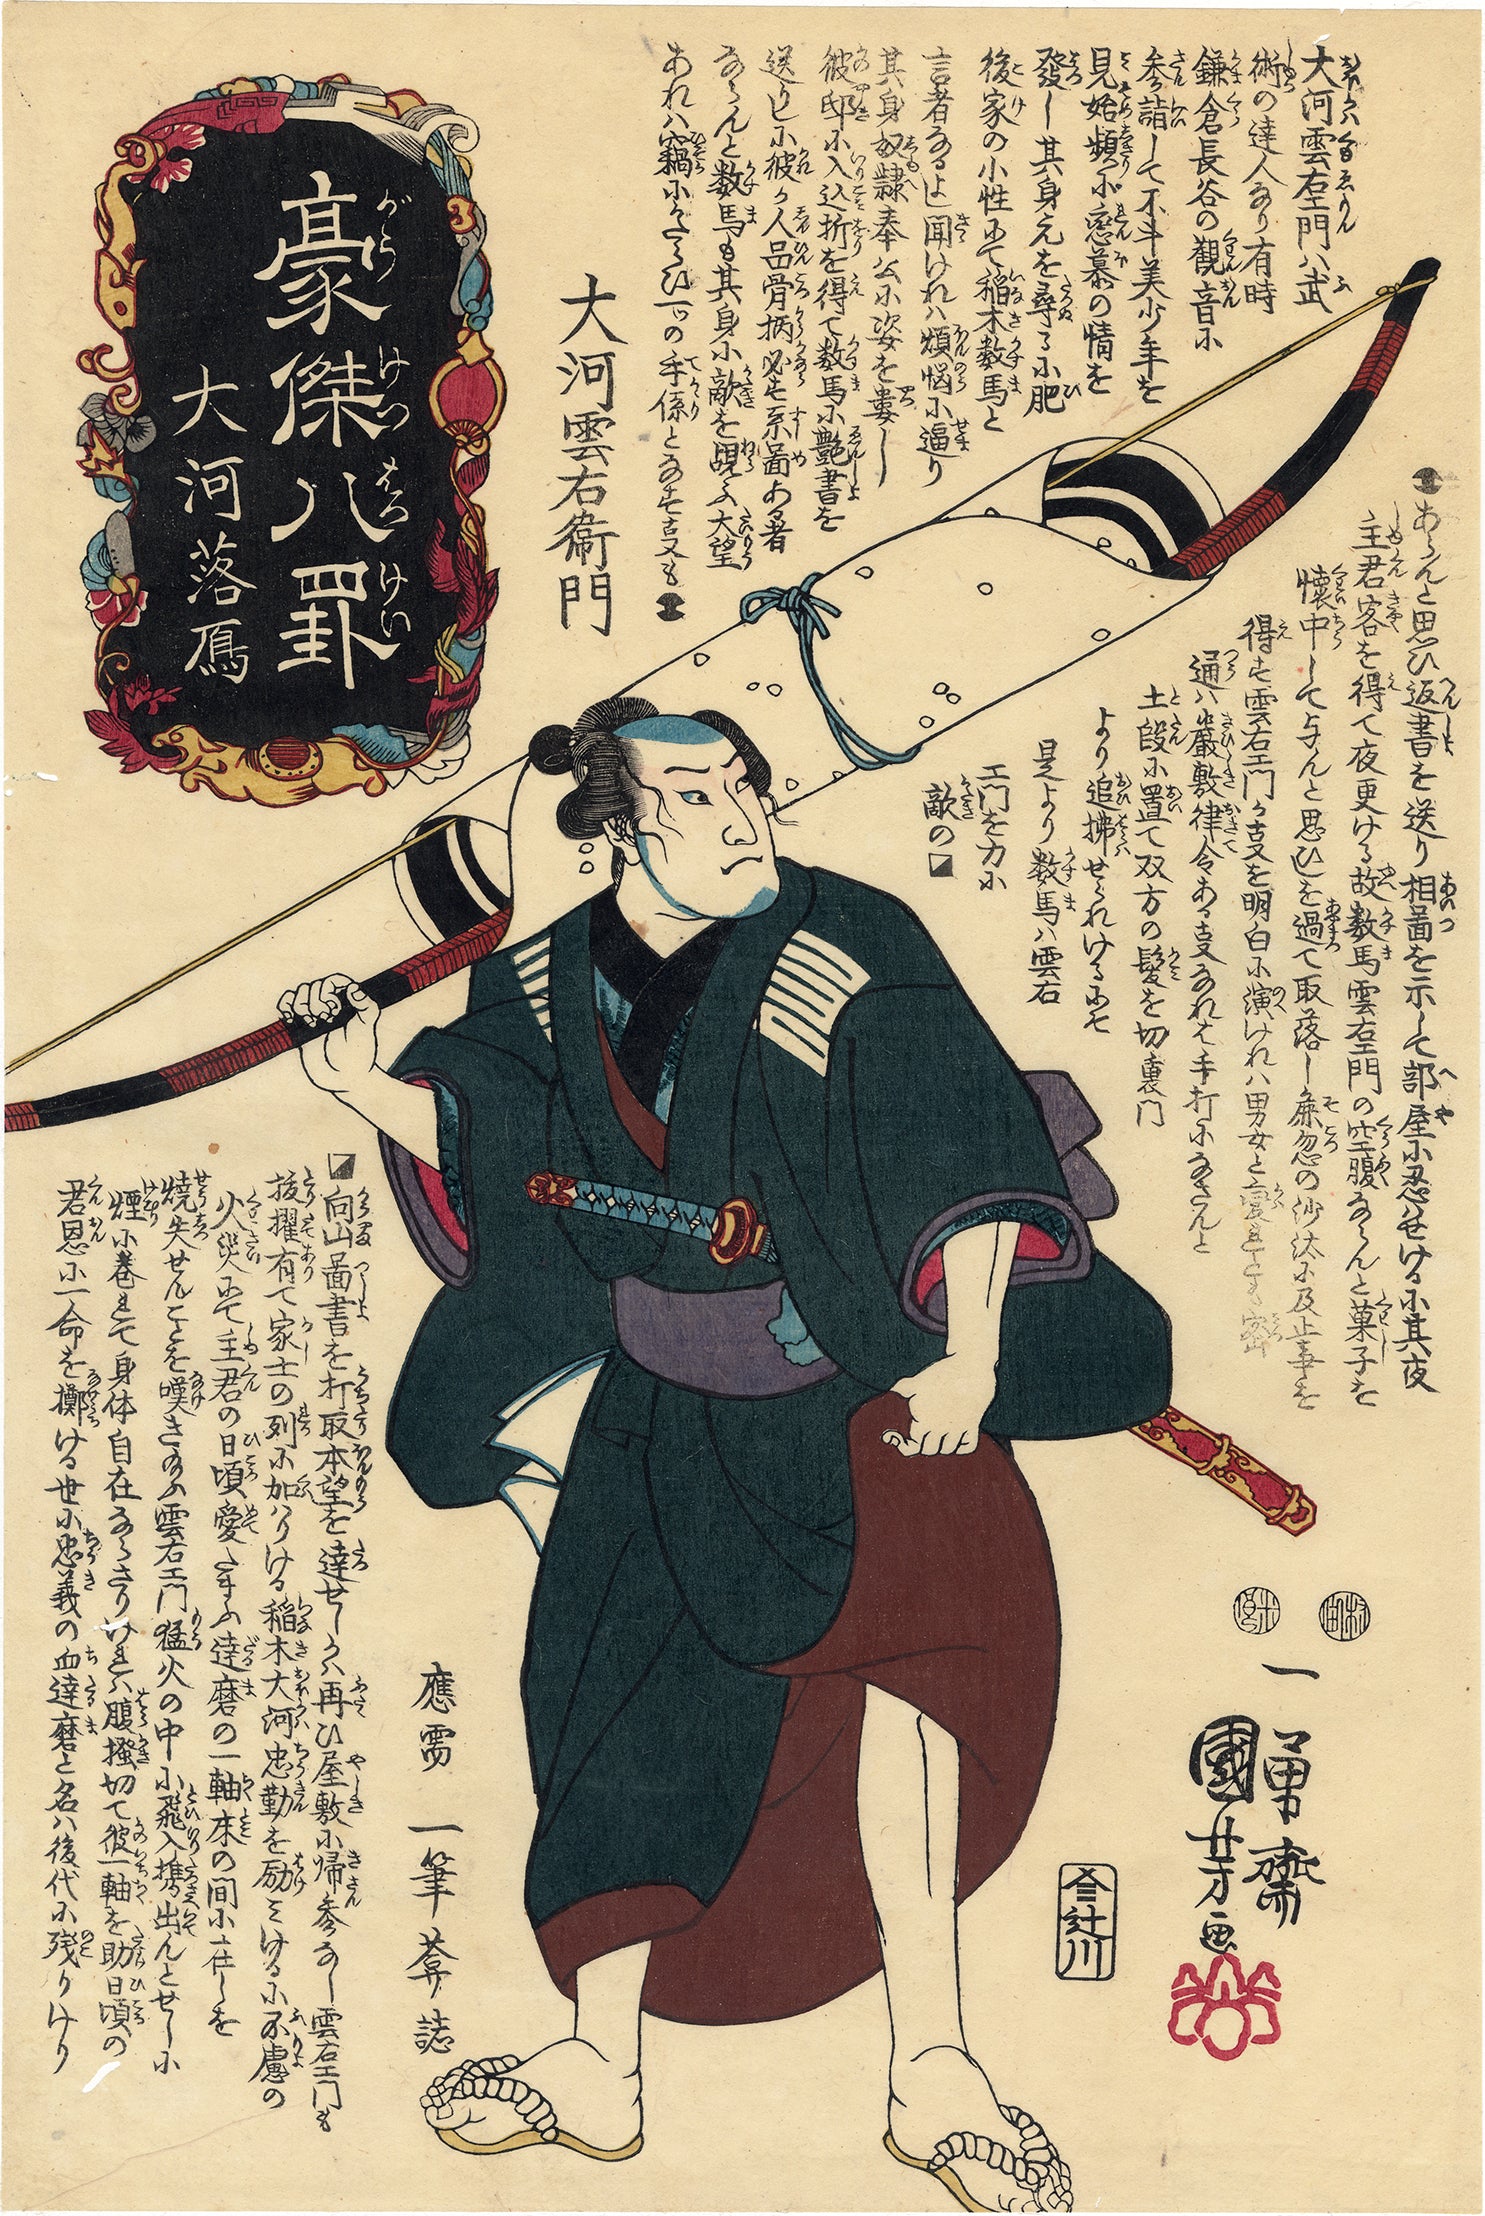 豪傑八卦
がうけつはつけい
大河落鳫
大河雲右衛門
大河雲右エ門ハ武
術の達人なり有時
鎌倉長谷の観音に
参詣して不斗美少年を
見始頻に恋慕の情を
發し其身元を尋るに肥
後家の小性にて稲木数馬と
言者なるよし聞けれハ煩悩に逼り
其身奴隷奉公に姿を婁し
彼邸に入込折を得て数馬に艶書を
送りしに彼が人品骨柄必す系図ある者
ならんと数馬も其身に敵を覘ふ大望
あれハ窃にかたらひ一ツの手係となす支も
あらんと思ひ返書を送り相図を示して部屋に忍バせけるに其夜
主君客を得て夜更ける故数馬雲右エ門の空腹ならんと菓子を
懐中して与んと思ひしを過て取落し麁忽の沙汰に及止事を
得す雲右エ門が支を明白に演けれハ男女と
通ハ厳敷律令ある支なれは手打になさんと
土段に置て双方の髪を切裏門
より追拂せられけるにそ
是より数馬ハ雲右
エ門を力に
敵の
向山図書を打取本望を達せしかハ再ひ屋敷に帰参なし雲右エ門も
抜擢有て家士の列に加ハりける稲木大河忠勤を励ミけるに不慮の
火災にて主君の日頃愛したまふ達磨の一軸床の間に在しを
焼失せんことを嘆き給ふ雲右エ門猛火の中に飛入携出んとせしに
煙に巻れて身体自在ならさりけれハ腹掻切て彼一軸を助日頃の
君恩に一命を擲ける世に忠義の血達磨と名ハ後代に残りけり
應需
一筆葊誌
村田
米良
一勇齋
國芳画
辻川